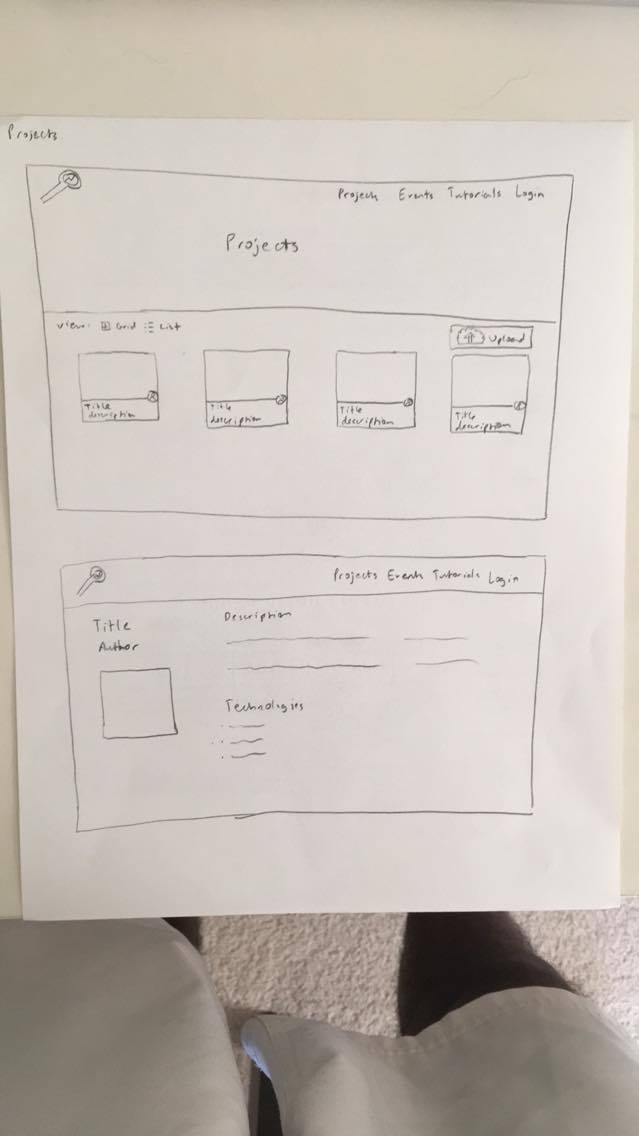 Projects
Projects Events Tutorials Login
Projects
View: Grid List
Upload
Title Title Title Title
description description description description
Projects Events Tutorials Login
Title
Author
Description
Technologies